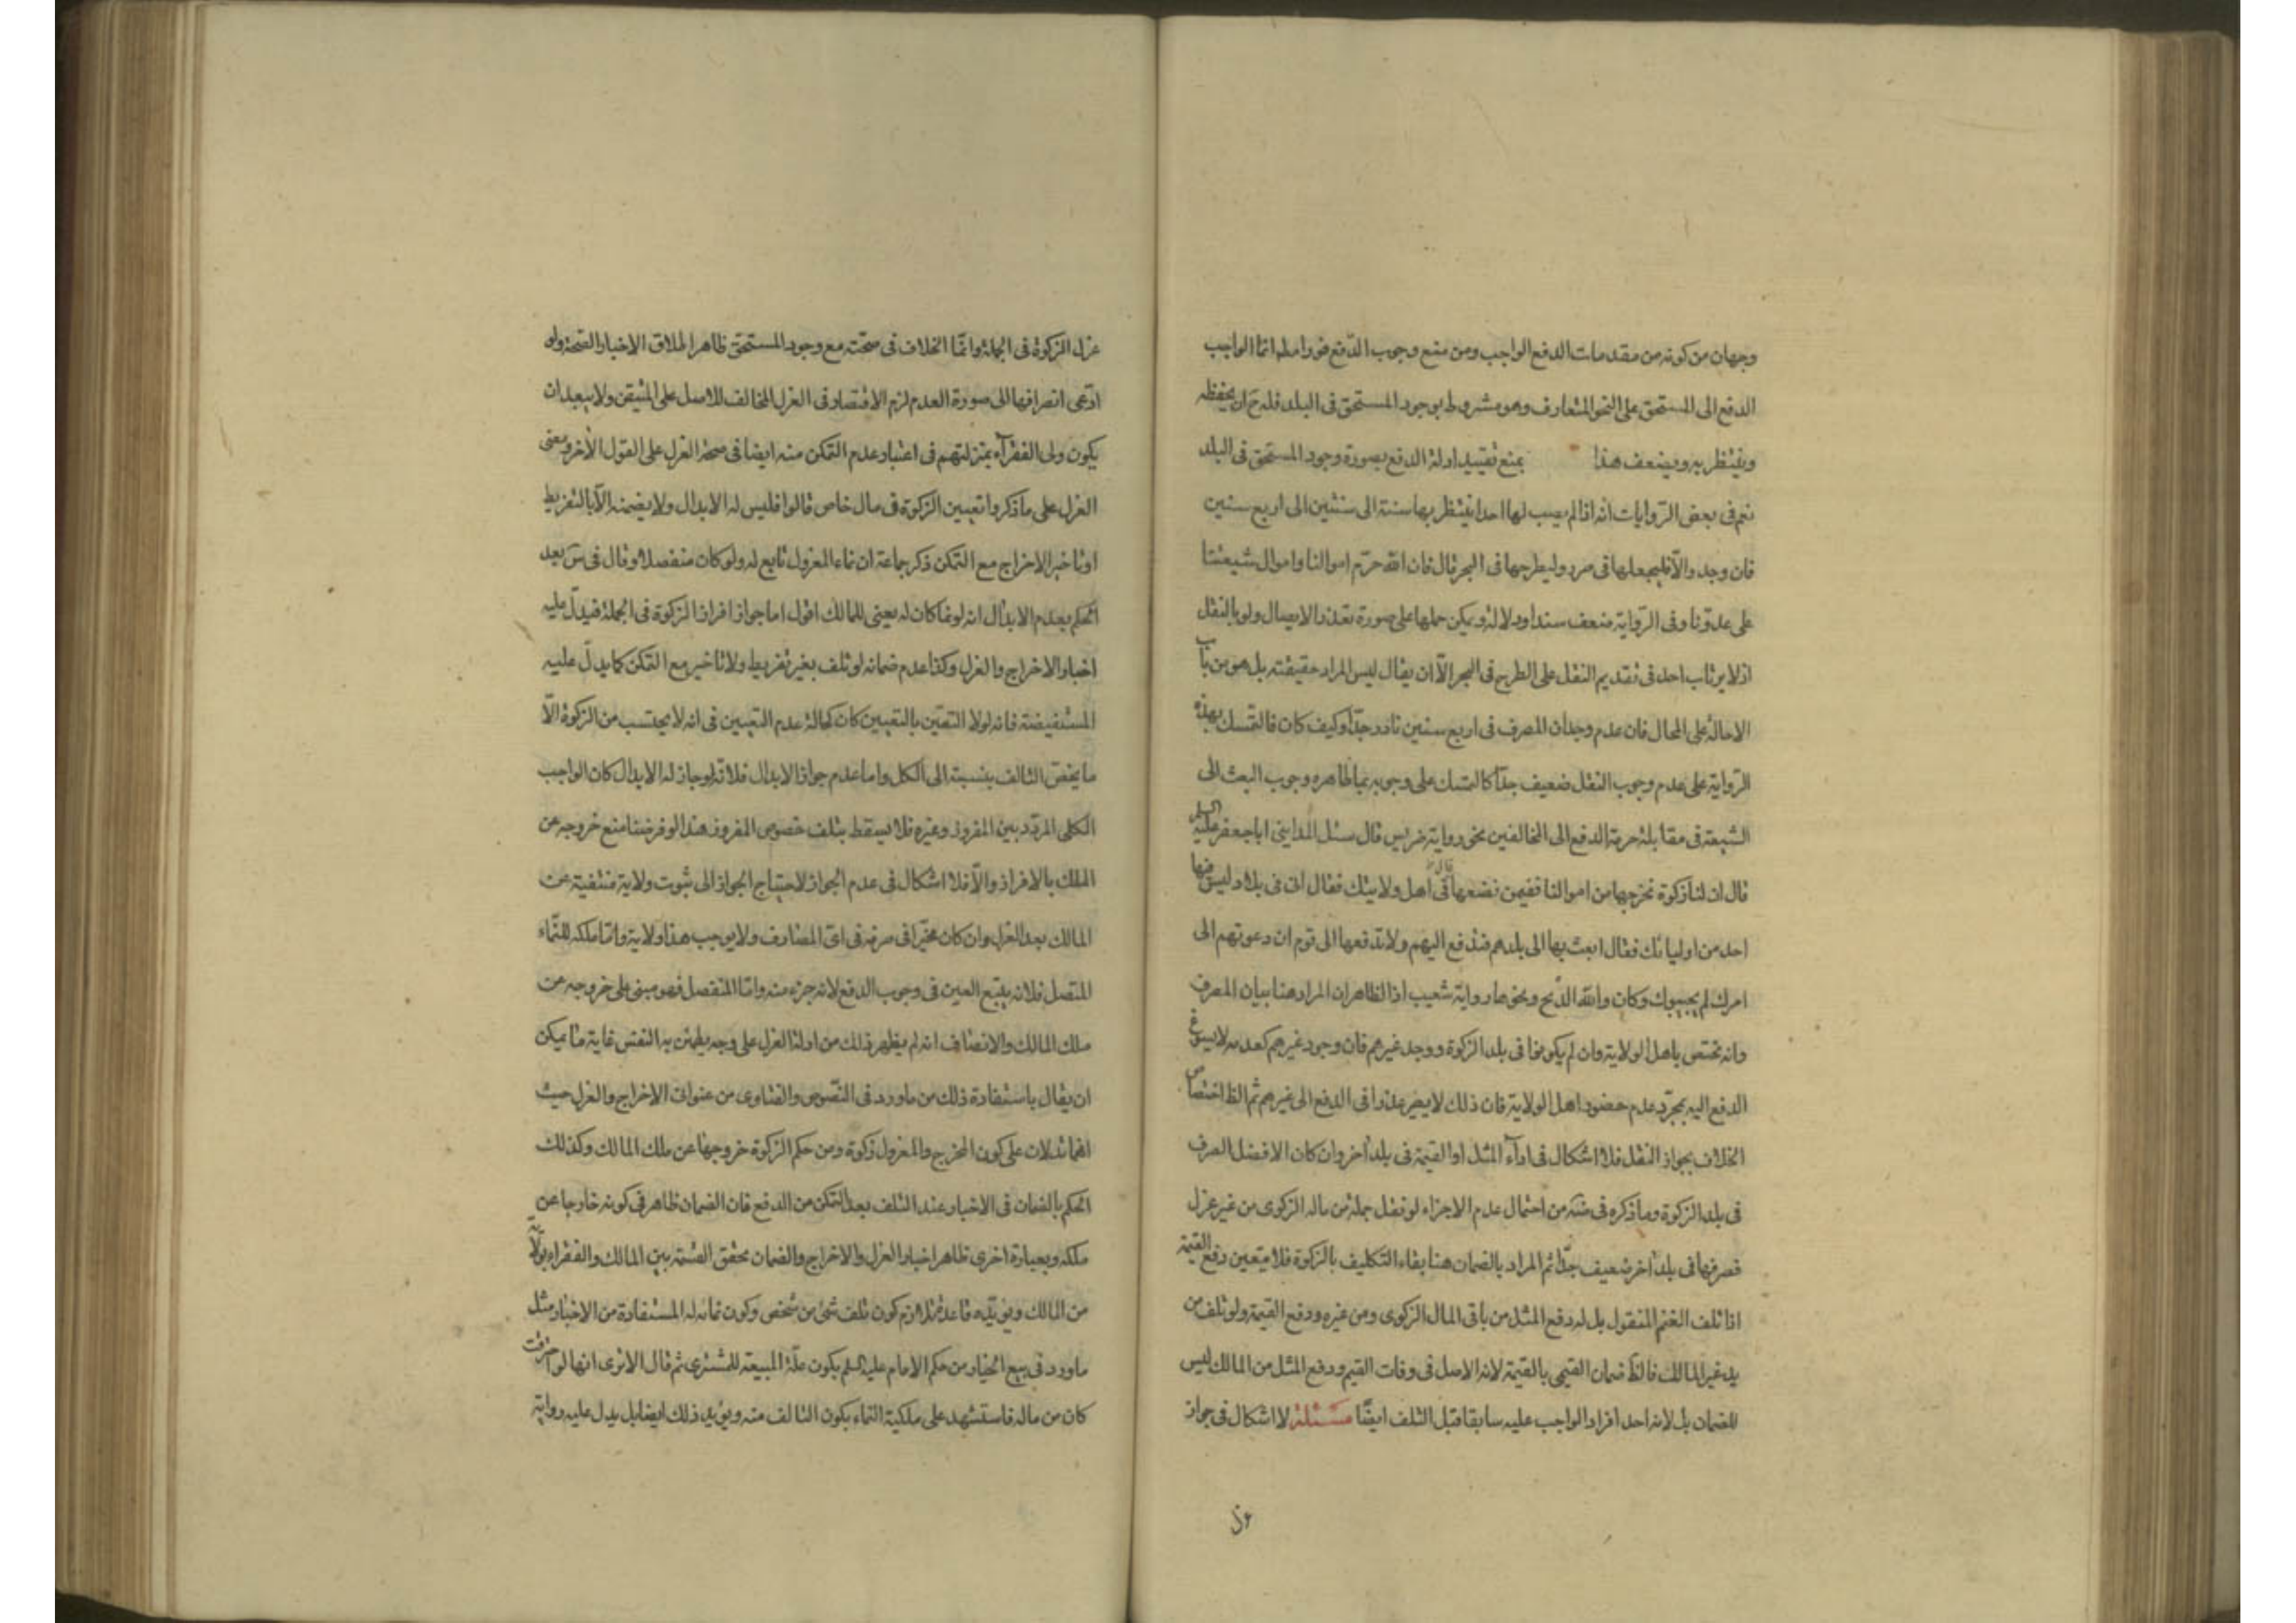 وجهان من كونه من مقدمات الدفع الواجب ومن منع وجوب الدفع فورا مطلقا انما الواجب
الدفع الى المستحق على النحو المتعارف وهو مشروط بوجود المستحق فى البلد فله ح ان يحفظه
وينتظر به ويضعف هذا بمنع تقييد ادلة الدفع بصورة وجود المستحق فى البلد
نعم فى بعض الروايات انه اذا لم يصب لها احدا ينتظر بها سنة الى سنتين الى اربع سنين
فان وجد والّا فليجعلها فى صرر وليطرحها فى البحر قال فان الله حرّم اموالنا واموال شيعتنا
على عدوّنا وفى الرواية ضعف سندا ودلالة ويمكن حملها على صورة تعذر الايصال ولو بالنقل
اذ لا يرتاب احد فى تقديم النقل على الطرح فى البحر الّا ان يقال ليس المراد حقيقته بل هو من باب
الاحالة على المحال فان عدم وجدان المصرف فى اربع سنين نادر جدّا وكيف كان فالتمسك بهذه
الرّواية على عدم وجوب النقل ضعيف جدّا كالتمسك على وجوبه بما ظاهره وجوب البعث الى
الشيعة فى مقابلة حرمة الدفع الى المخالفين نحو رواية ضريس قال سئل المداينى ابا جعفر عليه السلم
قال ان لنا زكوة نخرجها من اموالنا ففيمن نضعها قال فى اهل ولايتك فقال انى فى بلاد ليس فيها
احد من اوليائك فقال ابعث بها الى بلدهم فتدفع اليهم ولا تدفعها الى قوم ان دعوتهم الى
امرك لم يجيبوك وكان والله الذبح ونحوها رواية شعيب اذ الظاهر ان المراد هنا بيان المصرف
وانه مختص باهل الولاية وان لم يكونوا فى بلد الزكوة ووجد غيرهم فان وجود غيرهم كعدمه لا يسوغ
الدفع اليه بمجرّد عدم حضور اهل الولاية فان ذلك لا يصير عذرا فى الدفع الى غيرهم ثم الظ اختصاص
الخلاف بجواز النقل فلا اشكال فى اداء المثل او القيمة فى بلد اخر وان كان الافضل الصرف
فى بلد الزكوة وما ذكره فى من احتمال عدم الاجزاء لو نقل جملة من ماله الزكوى من غير عزل
فصرفها فى بلد اخر ضعيف جدّا ثم المراد بالضمان هنا بقاء التكليف بالزكوة فلا يتعين دفع القيمة
اذا تلف الغنم المنقول بل له دفع المثل من باقى المال الزكوى ومن غيره ودفع القيمة ولو تلف من
يد غير المالك فالظ ضمان القيمى بالقيمة لانه الاصل فى القيم ودفع المثل من المالك ليس
للضمان بل لانه احد افراد الواجب عليه سابقا قبل التلف ايضًا مسئلة لا اشكال فى جواز
عزل الزكوة فى الجملة وانما الخلاف فى صحته مع وجود المستحق ظاهر اطلاق الاخبار الصحة ولو
ادّعى انصرافها الى صورة العدم لزم الاقتصار فى العزل المخالف للاصل على المتيقن ولا يبعد ان
يكون ولى الفقرآء بمنزلتهم فى اعتبار عدم التمكن منه ايضا فى صحة العزل على القول الاخر ومعنى
العزل على ما ذكروا تعيين الزكوة فى مال خاص قالوا فليس له الابدال ولا يضمنه الّا بالتفريط
او تاخير الاخراج مع التمكن ذكر جماعة ان نماء المعزول تابع له ولو كان منفصلا وقال فى س بعد
الحكم بعدم الابدال انه لو نما كان له يعنى للمالك اقول اما جواز افراز الزكوة فى الجملة فيدلّ عليه
اخبار الاخراج والعزل وكذا عدم ضمانه لو تلف بغير تفريط ولا تاخير مع التمكن كما يدلّ عليه
المستفيضة فانه لولا التعيّن بالتعيين كان كحالة عدم التعيين فى انه لا يحتسب من الزكوة الّا
ما يخصّ التالف بنسبته الى الكل واما عدم جواز الابدال فلانّه لو جاز له الابدال كان الواجب
الكلى المردّد بين المفروز وغيره فلا يسقط بتلف خصوص المفروز هذا لو فرضنا منع خروجه عن
الملك بالافراز والّا فلا اشكال فى عدم الجواز لاحتياج الجواز الى ثبوت ولاية منتفية عن
المالك بعد العزل وان كان مخيّرا فى صرفه فى اىّ المصارف ولا يوجب هذا ولاية وامّا ملكه للنّماء
المتصل فلانه يتبع العين فى وجوب الدفع لانه جزء منه وامّا المنفصل فهو مبنى على خروجه عن
ملك المالك والانصاف انه لم يظهر ذلك من ادلة العزل على وجه يطمئن به النفس غاية ما يمكن
ان يقال باستفادة ذلك من ما ورد فى النّصوص والفتاوى من عنوان الاخراج والعزل حيث
انهما تدلان على كون المخرج والمعزول زكوة ومن حكم الزكوة خروجها عن ملك المالك وكذلك
الحكم بالضمان فى الاخبار عند التلف بعد التمكن من الدفع فان الضمان ظاهر فى كونه خارجا عن
ملكه وبعبارة اخرى ظاهر اخبار العزل والاخراج والضمان تحقق القسمة بين المالك والفقراء بولاية
من المالك ويؤيّده قاعدة تلازم كون تلف شئ من شخص وكون نمائه له المستفادة من الاخبار مثل
ما ورد فى بيع الخيار من حكم الامام عليه السلم بكون غلّة المبيعة للمشترى ثم قال الا ترى انها لو احترقت
كان من ماله فاستشهد على ملكية النماء بكون التالف منه ويؤيد ذلك ايضا بل يدل عليه رواية